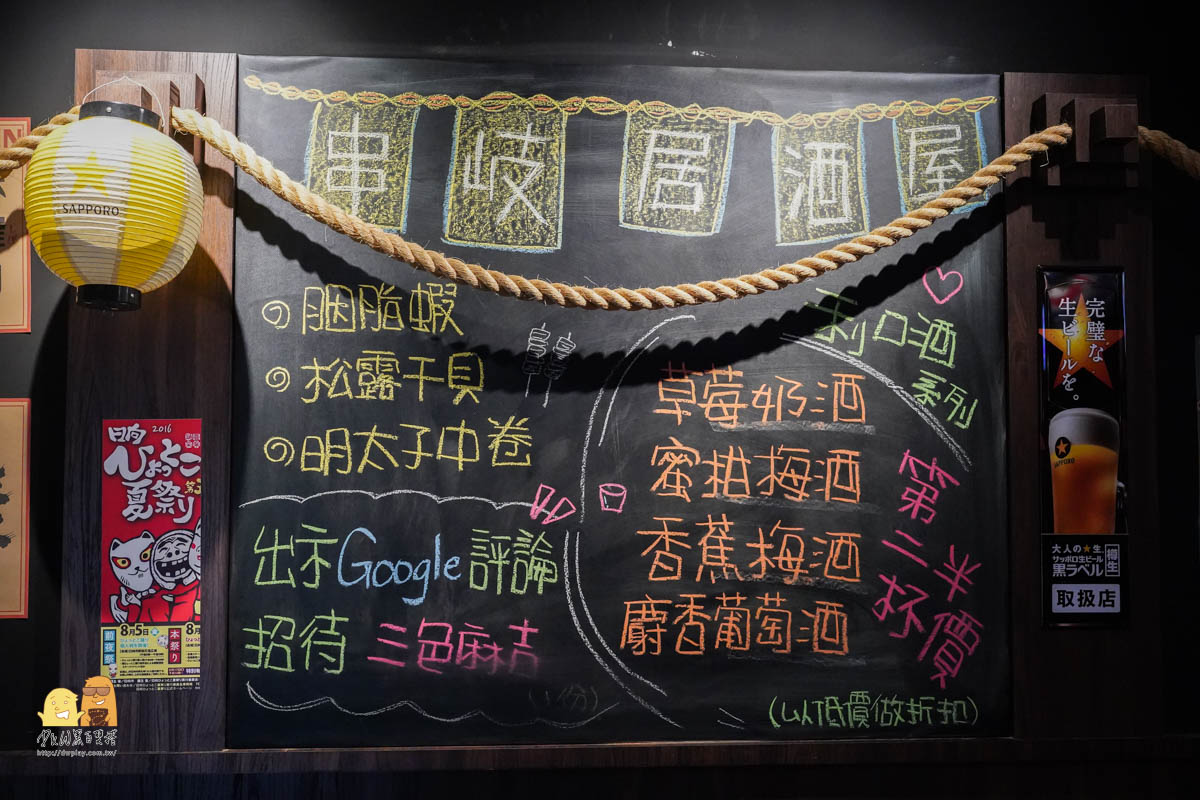 串岐居酒屋
胭脂蝦
松露干貝
明太子中卷
出示Google評論
招待 三色麻吉
(1份)
利口酒
系列
草莓奶酒
蜜柑梅酒
香蕉梅酒
麝香葡萄酒
第二杯
半價
(以低價做折扣)
SAPPORO
日向 2016
ひょっとこ
夏祭り
8月5日
前夜祭
本祭り
完璧な
生ビールを。
SAPPORO
大人の★生
サッポロ生ビール
黒ラベル
樽生
取扱店
http://dwplay.com.tw/